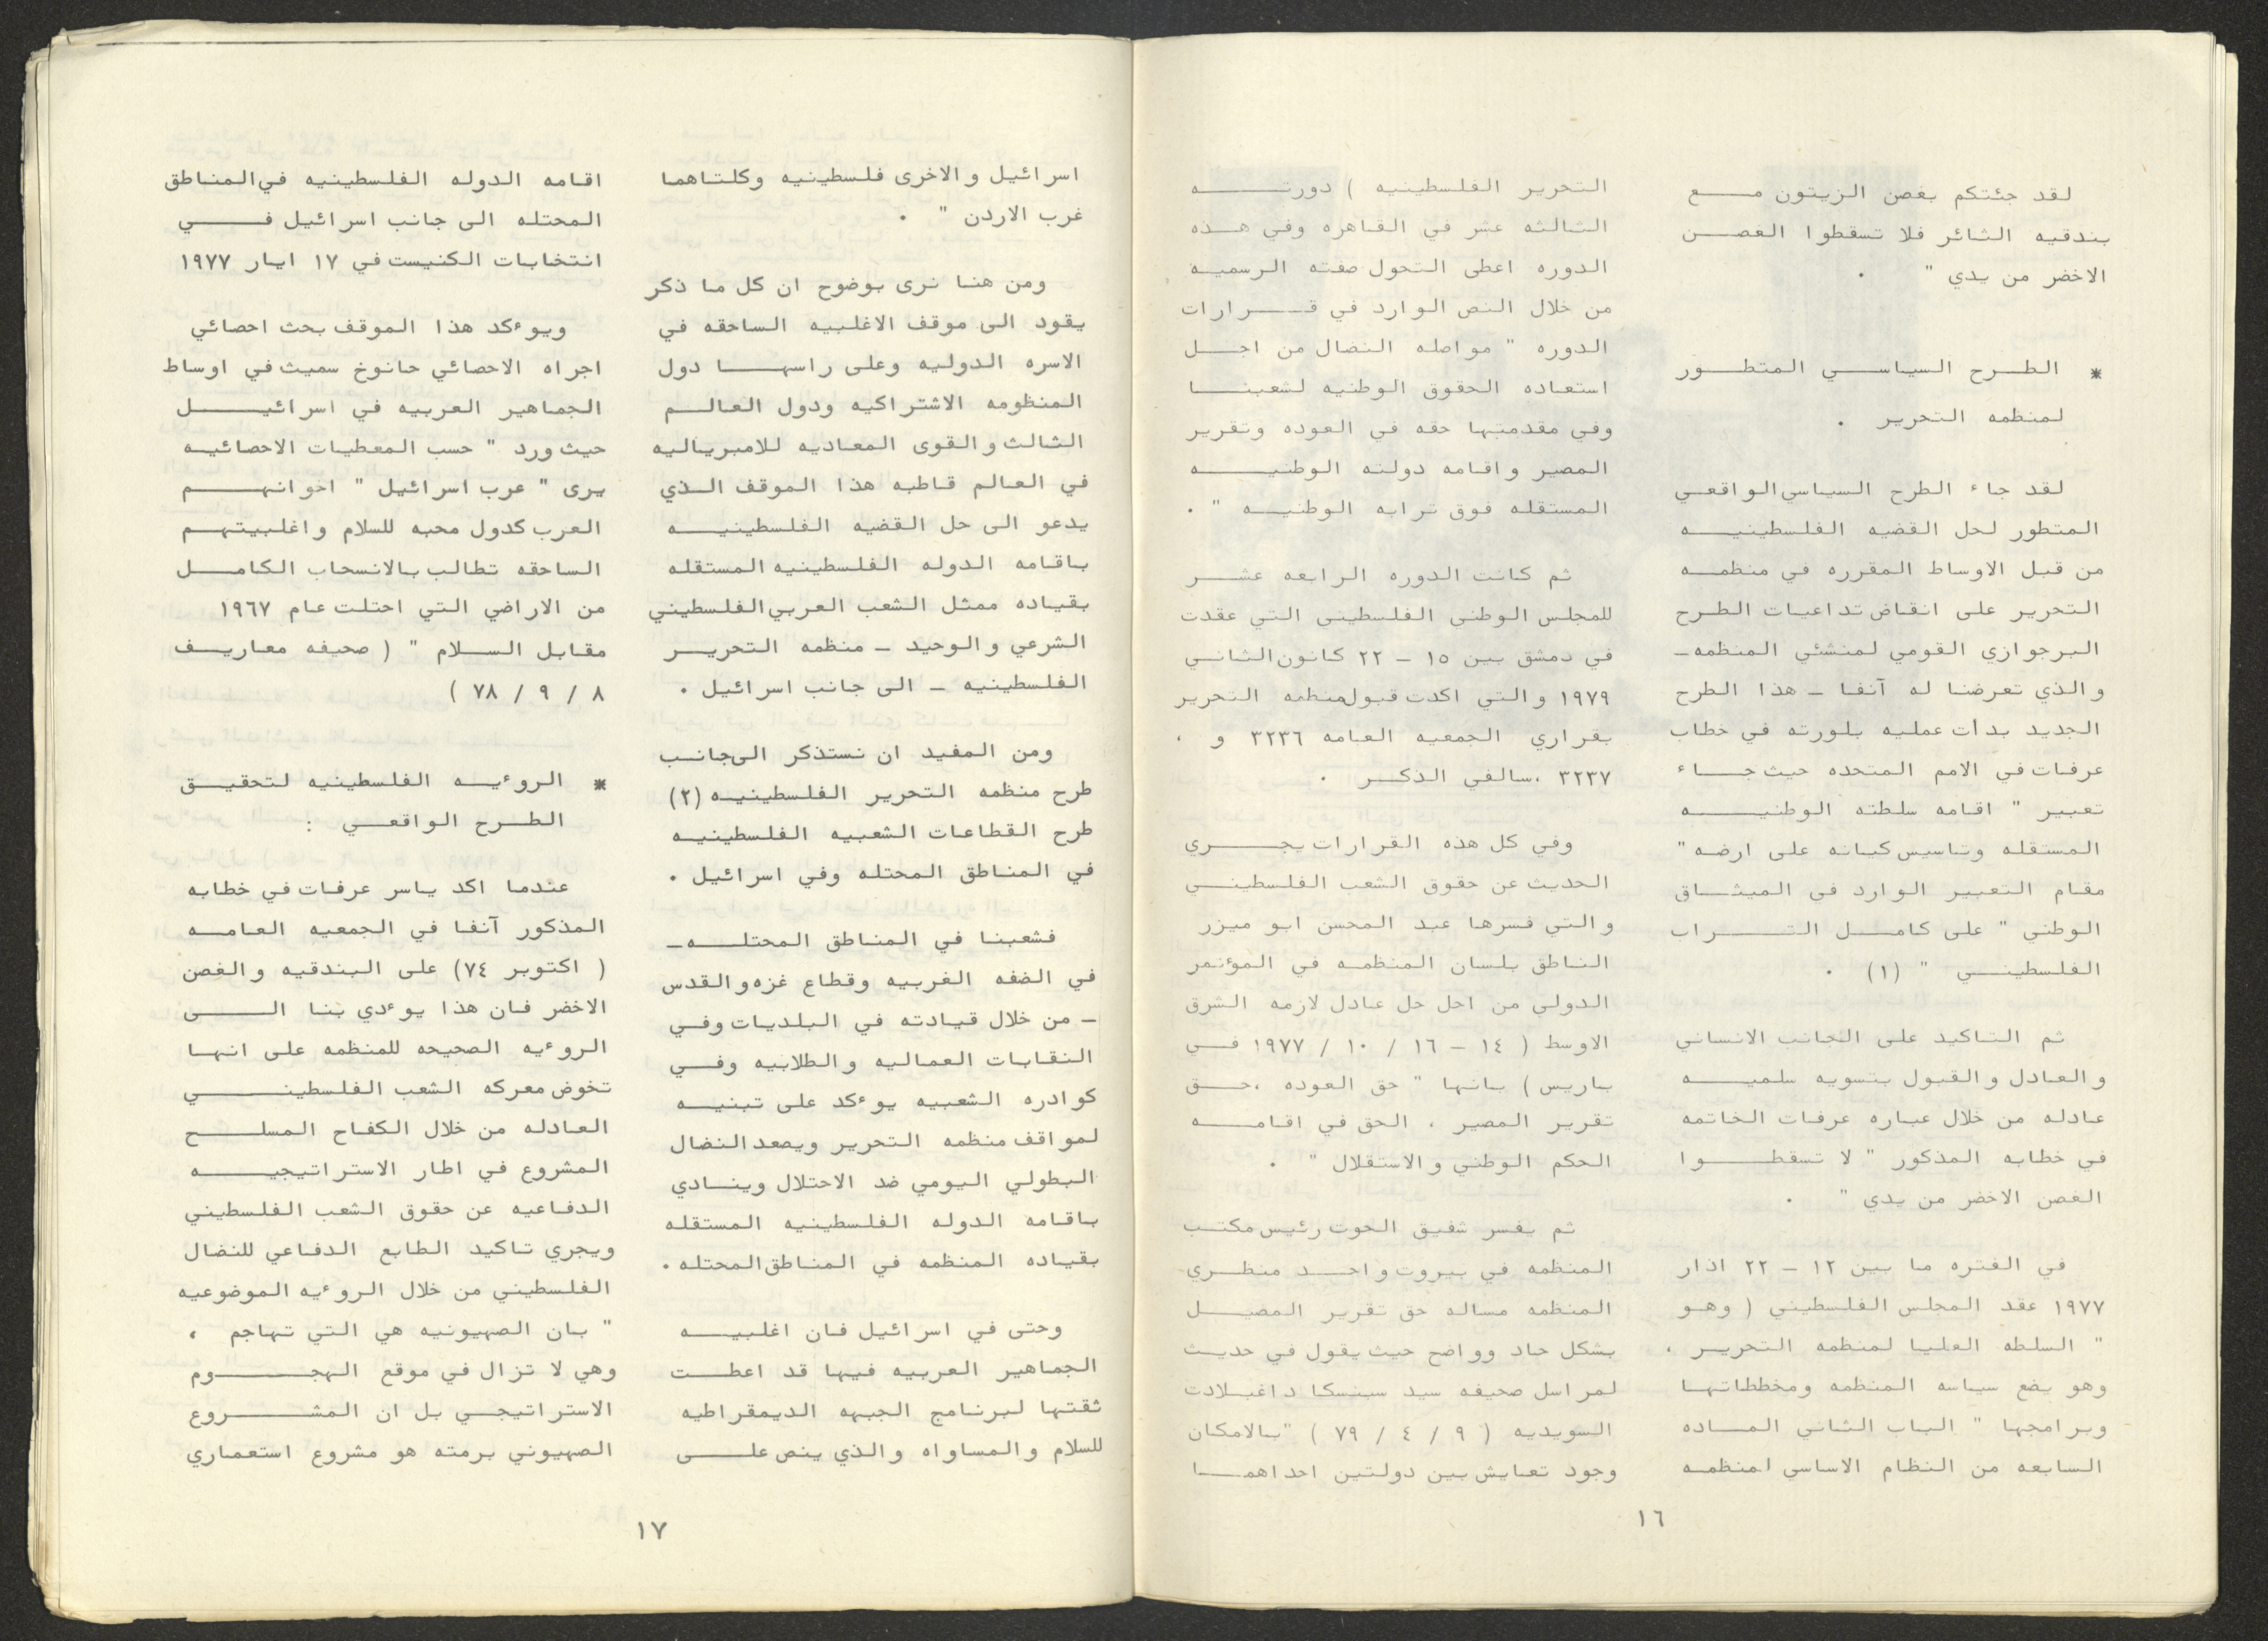 لقد جئتكم بغصن الزيتون مع
بندقيه الثائر فلا تسقطوا الغصن
الاخضر من يدي " .
* الطرح السياسي المتطور
لمنظمه التحرير .
لقد جاء الطرح السياسي الواقعي
المتطور لحل القضيه الفلسطينيه
من قبل الاوساط المقرره في منظمه
التحرير على انقاض تداعيات الطرح
البرجوازي القومي لمنشئي المنظمه ـ
والذي تعرضنا له آنفا ـ هذا الطرح
الجديد بدأت عمليه بلورته في خطاب
عرفات في الامم المتحده حيث جاء
تعبير " اقامه سلطته الوطنيه
المستقله وتاسيس كيانه على ارضه "
مقام التعبير الوارد في الميثاق
الوطني " على كامل التراب
الفلسطيني " (١) .
ثم التاكيد على الجانب الانساني
والعادل والقبول بتسويه سلميه
عادله من خلال عباره عرفات الخاتمه
في خطابه المذكور " لا تسقطوا
الغصن الاخضر من يدي " .
في الفتره ما بين ١٢ ـ ٢٢ اذار
١٩٧٧ عقد المجلس الفلسطيني ( وهو
" السلطه العليا لمنظمه التحرير ،
وهو يضع سياسه المنظمه ومخططاتها
وبرامجها " الباب الثاني الماده
السابعه من النظام الاساسي لمنظمه
التحرير الفلسطينيه ) دورته
الثالثه عشر في القاهره وفي هذه
الدوره اعطى التحول صفته الرسمية
من خلال النص الوارد في قرارات
الدوره " مواصله النضال من اجل
استعاده الحقوق الوطنيه لشعبنا
وفي مقدمتها حقه في العوده وتقرير
المصير واقامه دولته الوطنيه
المستقله فوق ترابه الوطنيه " .
ثم كانت الدوره الرابعه عشر
للمجلس الوطني الفلسطيني التي عقدت
في دمشق بين ١٥ ـ ٢٢ كانون الثاني
١٩٧٩ والتي اكدت قبول منظمه التحرير
بقراري الجمعيه العامه ٣٢٣٦ و ،
٣٢٣٧ ،سالفي الذكر .
وفي كل هذه القرارات يجري
الحديث عن حقوق الشعب الفلسطيني
والتي فسرها عبد المحسن ابو ميزر
الناطق بلسان المنظمه في المؤتمر
الدولي من اجل حل عادل لازمه الشرق
الاوسط ( ١٤ ـ ١٦ / ١٠ / ١٩٧٧ في
باريس ) بانها " حق العوده ،حق
تقرير المصير ، الحق في اقامه
الحكم الوطني والاستقلال " .
ثم يفسر شفيق الحوت رئيس مكتب
المنظمه في بيروت واحد منظري
المنظمه مساله حق تقرير المصيل
بشكل حاد وواضح حيث يقول في حديث
لمراسل صحيفه سيد سينسكا داغبلادت
السويديه ( ٩ / ٤ / ٧٩ ) "بالامكان
وجود تعايش بين دولتين احداهما
١٦
اسرائيل والاخرى فلسطينيه وكلتاهما
غرب الاردن " .
ومن هنا نرى بوضوح ان كل ما ذكر
يقود الى موقف الاغلبيه الساحقه في
الاسره الدوليه وعلى راسها دول
المنظومه الاشتراكيه ودول العالم
الثالث والقوى المعاديه للامبرياليه
في العالم قاطبه هذا الموقف الذي
يدعو الى حل القضيه الفلسطينيه
باقامه الدوله الفلسطينيه المستقله
بقياده ممثل الشعب العربي الفلسطيني
الشرعي والوحيد ـ منظمه التحرير
الفلسطينيه ـ الى جانب اسرائيل .
ومن المفيد ان نستذكر الى جانب
طرح منظمه التحرير الفلسطينيه (٢)
طرح القطاعات الشعبيه الفلسطينيه
في المناطق المحتله وفي اسرائيل .
فشعبنا في المناطق المحتله ـ
في الضفه الغربيه وقطاع غزه والقدس
ـ من خلال قيادته في البلديات وفي
النقابات العماليه والطلابيه وفي
كوادره الشعبيه يوءكد على تبنيه
لمواقف منظمه التحرير ويصعد النضال
البطولي اليومي ضد الاحتلال وينادي
باقامه الدوله الفلسطينيه المستقله
بقياده المنظمه في المناطق المحتله .
وحتى في اسرائيل فان اغلبيه
الجماهير العربيه فيها قد اعطت
ثقتها لبرنامج الجبهه الديمقراطيه
للسلام والمساواه والذي ينص على
اقامه الدوله الفلسطينيه في المناطق
المحتله الى جانب اسرائيل في
انتخابات الكنيست في ١٧ ايار ١٩٧٧
ويوءكد هذا الموقف بحث احصائي
اجراه الاحصائي حانوخ سميث في اوساط
الجماهير العربيه في اسرائيل
حيث ورد " حسب المعطيات الاحصائيه
يرى " عرب اسرائيل " اخوانهم
العرب كدول محبه للسلام واغلبيتهم
الساحقه تطالب بالانسحاب الكامل
من الاراضي التي احتلت عام ١٩٦٧
مقابل السلام " ( صحيفه معاريف
٨ / ٩ / ٧٨ )
* الروءيه الفلسطينيه لتحقيق
الطرح الواقعي :
عندما اكد ياسر عرفات في خطابه
المذكور آنفا في الجمعيه العامه
( اكتوبر ٧٤) على البندقيه والغصن
الاخضر فان هذا يوءدي بنا الى
الروءيه الصحيحه للمنظمه على انها
تخوض معركه الشعب الفلسطيني
العادله من خلال الكفاح المسلح
المشروع في اطار الاستراتيجيه
الدفاعيه عن حقوق الشعب الفلسطيني
ويجري تاكيد الطابع الدفاعي للنضال
الفلسطيني من خلال الروءيه الموضوعيه
" بان الصهيونيه هي التي تهاجم ،
وهي لا تزال في موقع الهجوم
الاستراتيجي بل ان المشروع
الصهيوني برمته هو مشروع استعماري
١٧